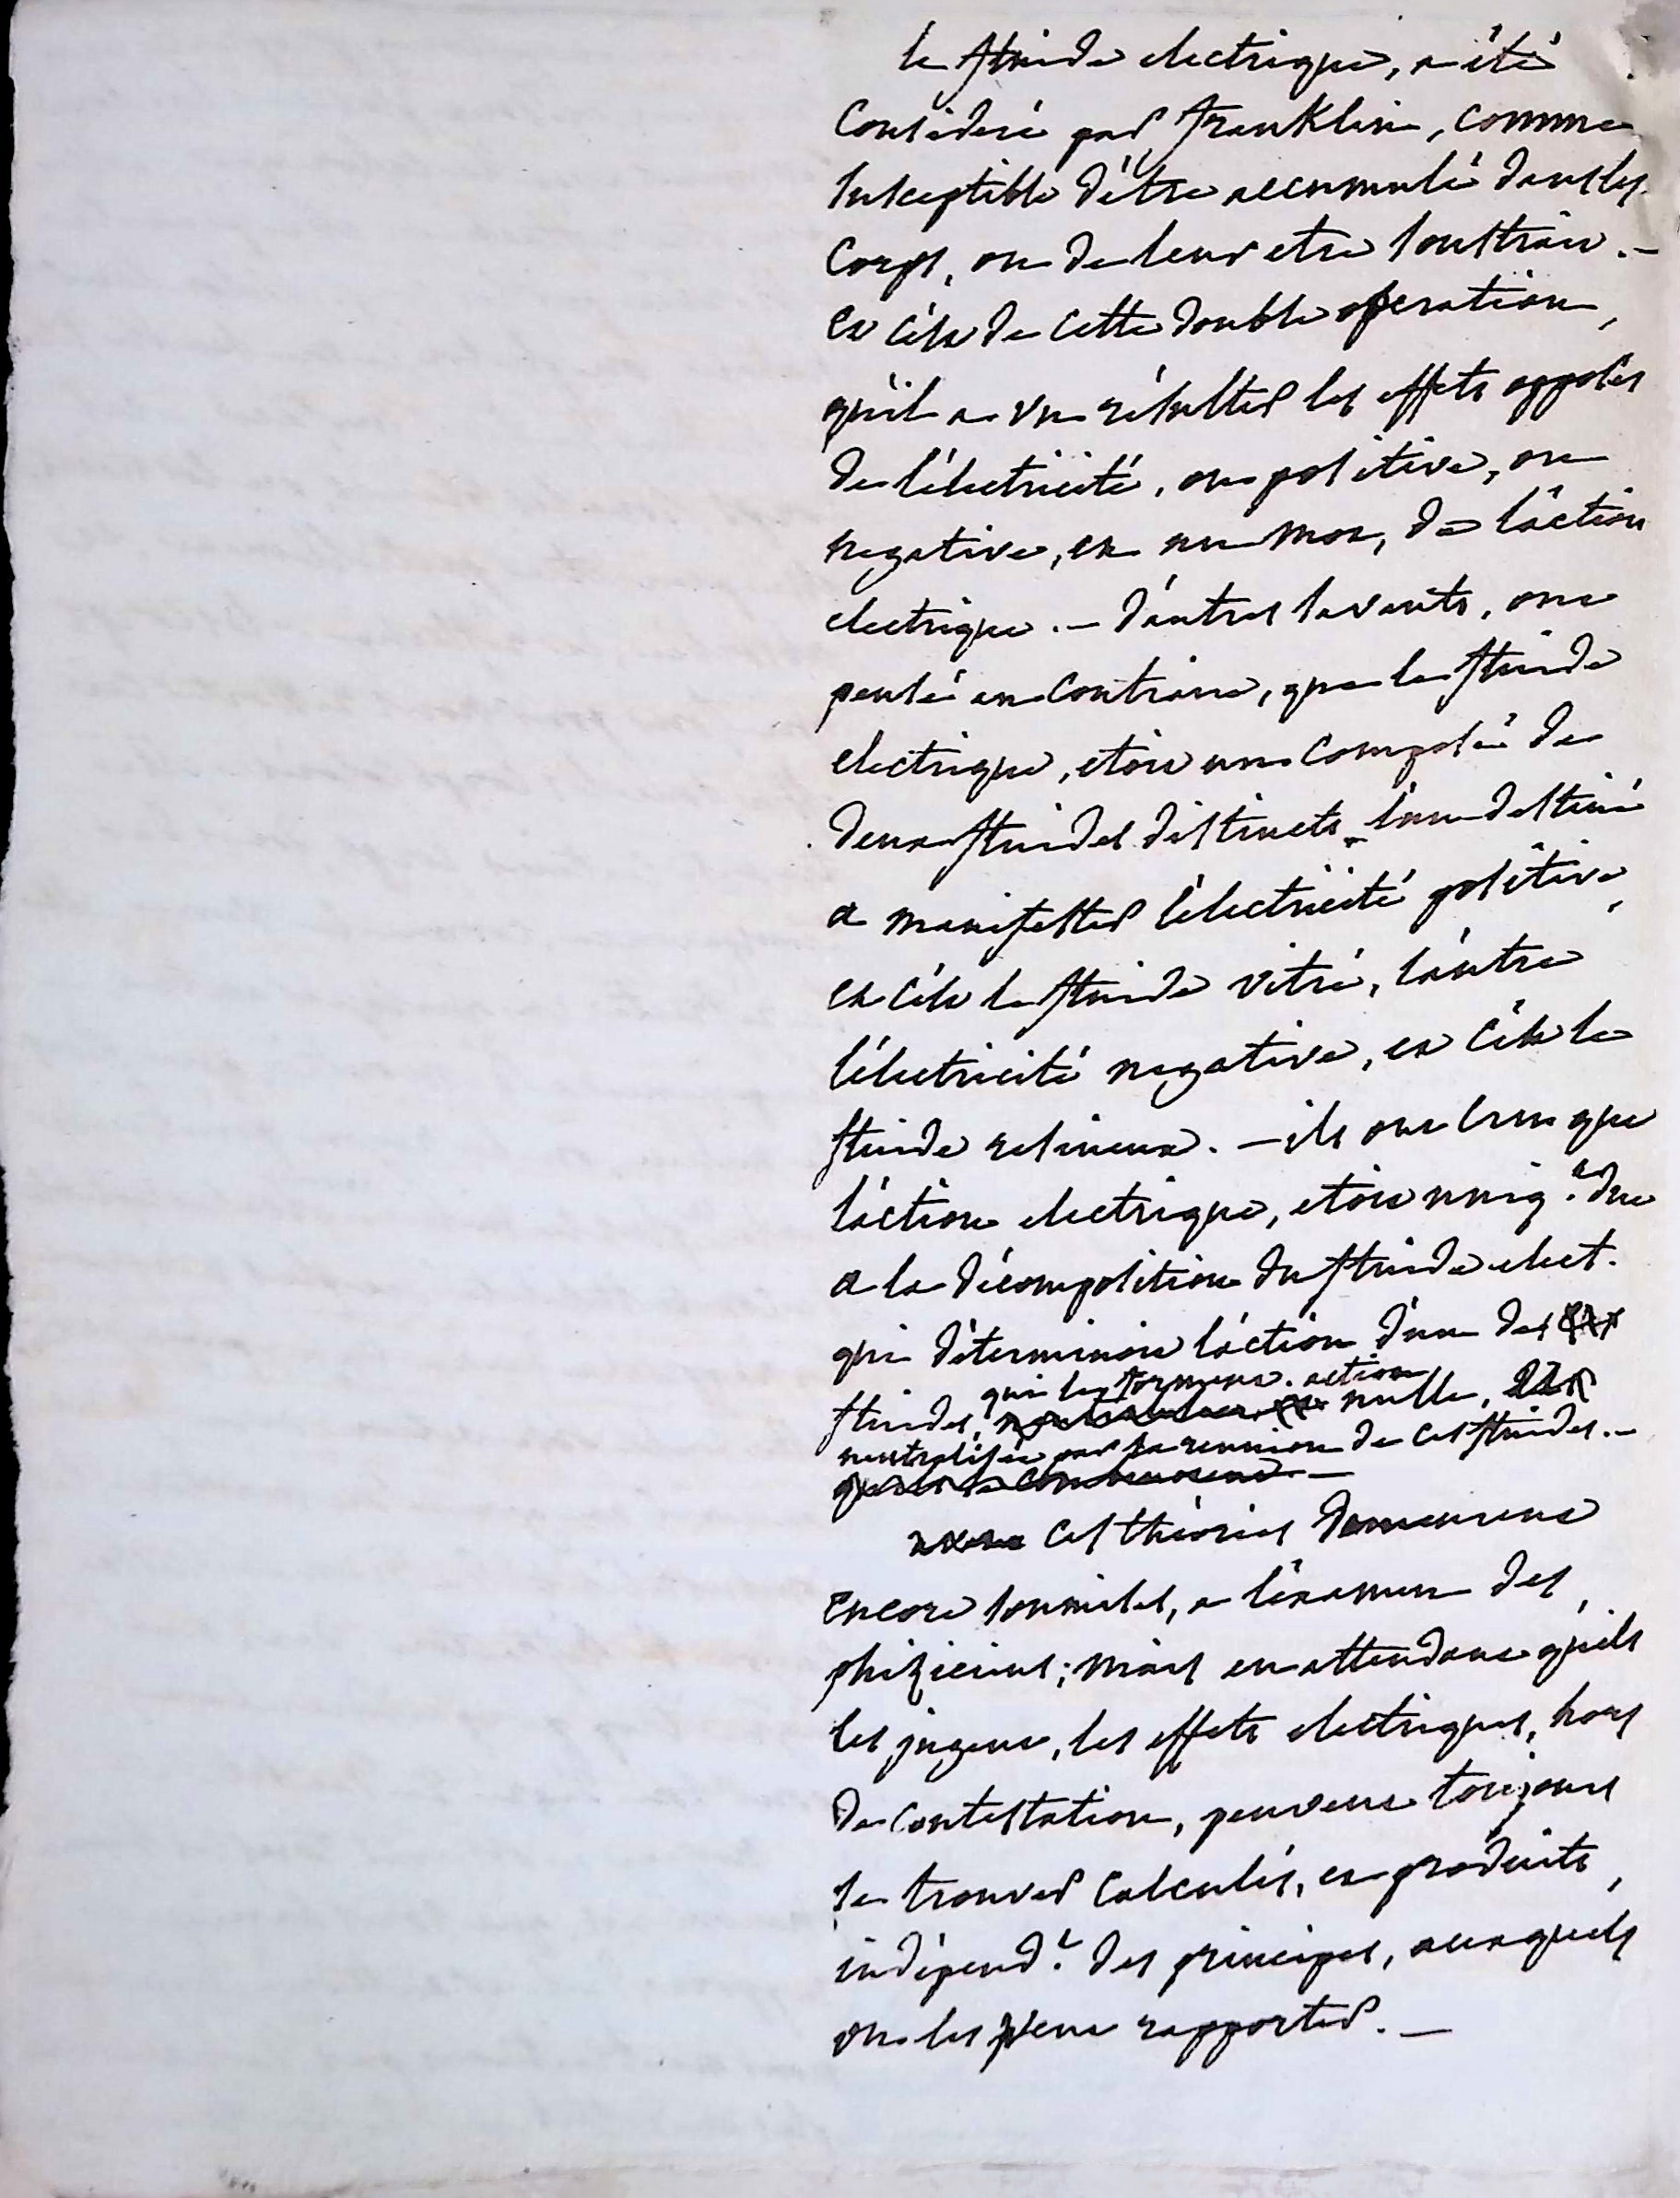 le fluide electrique, a été
Consideré par franklin, comme
susceptible d'être accumulé dans les
Corps, ou de leur etre soustrait. -
et c'est de cette double operation,
qu'il a vu résulter les effets opposés
de l'électricité, ou positive, ou
negative, en un mot, de l'action
electrique. - D'autres savants, ont
pensé au Contraire, que le fluide
electrique, etoit un Composé de
deux fluides distincts - l'un destiné
a manifester l'électricité positive,
et c'est le fluide vitré, l'autre
l'électricité negative, et c'est le
fluide resineux. - ils ont cru que
l'action electrique, etoit uniq.ent due
a la décomposition du fluide elect.
qui déterminoit l'action d'un des
fluides, qui le forment. action nulle,
neutralisée par la reunion de ces fluides. -
Ces théories demeurent
encore soumises, a l'éxamen des
phiziciens; mais en attendant qu'ils
les jugent, les effets electriques, hors
de Contestation, peuvent toujours
se trouver Calculés, et produits,
indépend.t des principes, auxquels
on les peut rapporter. -